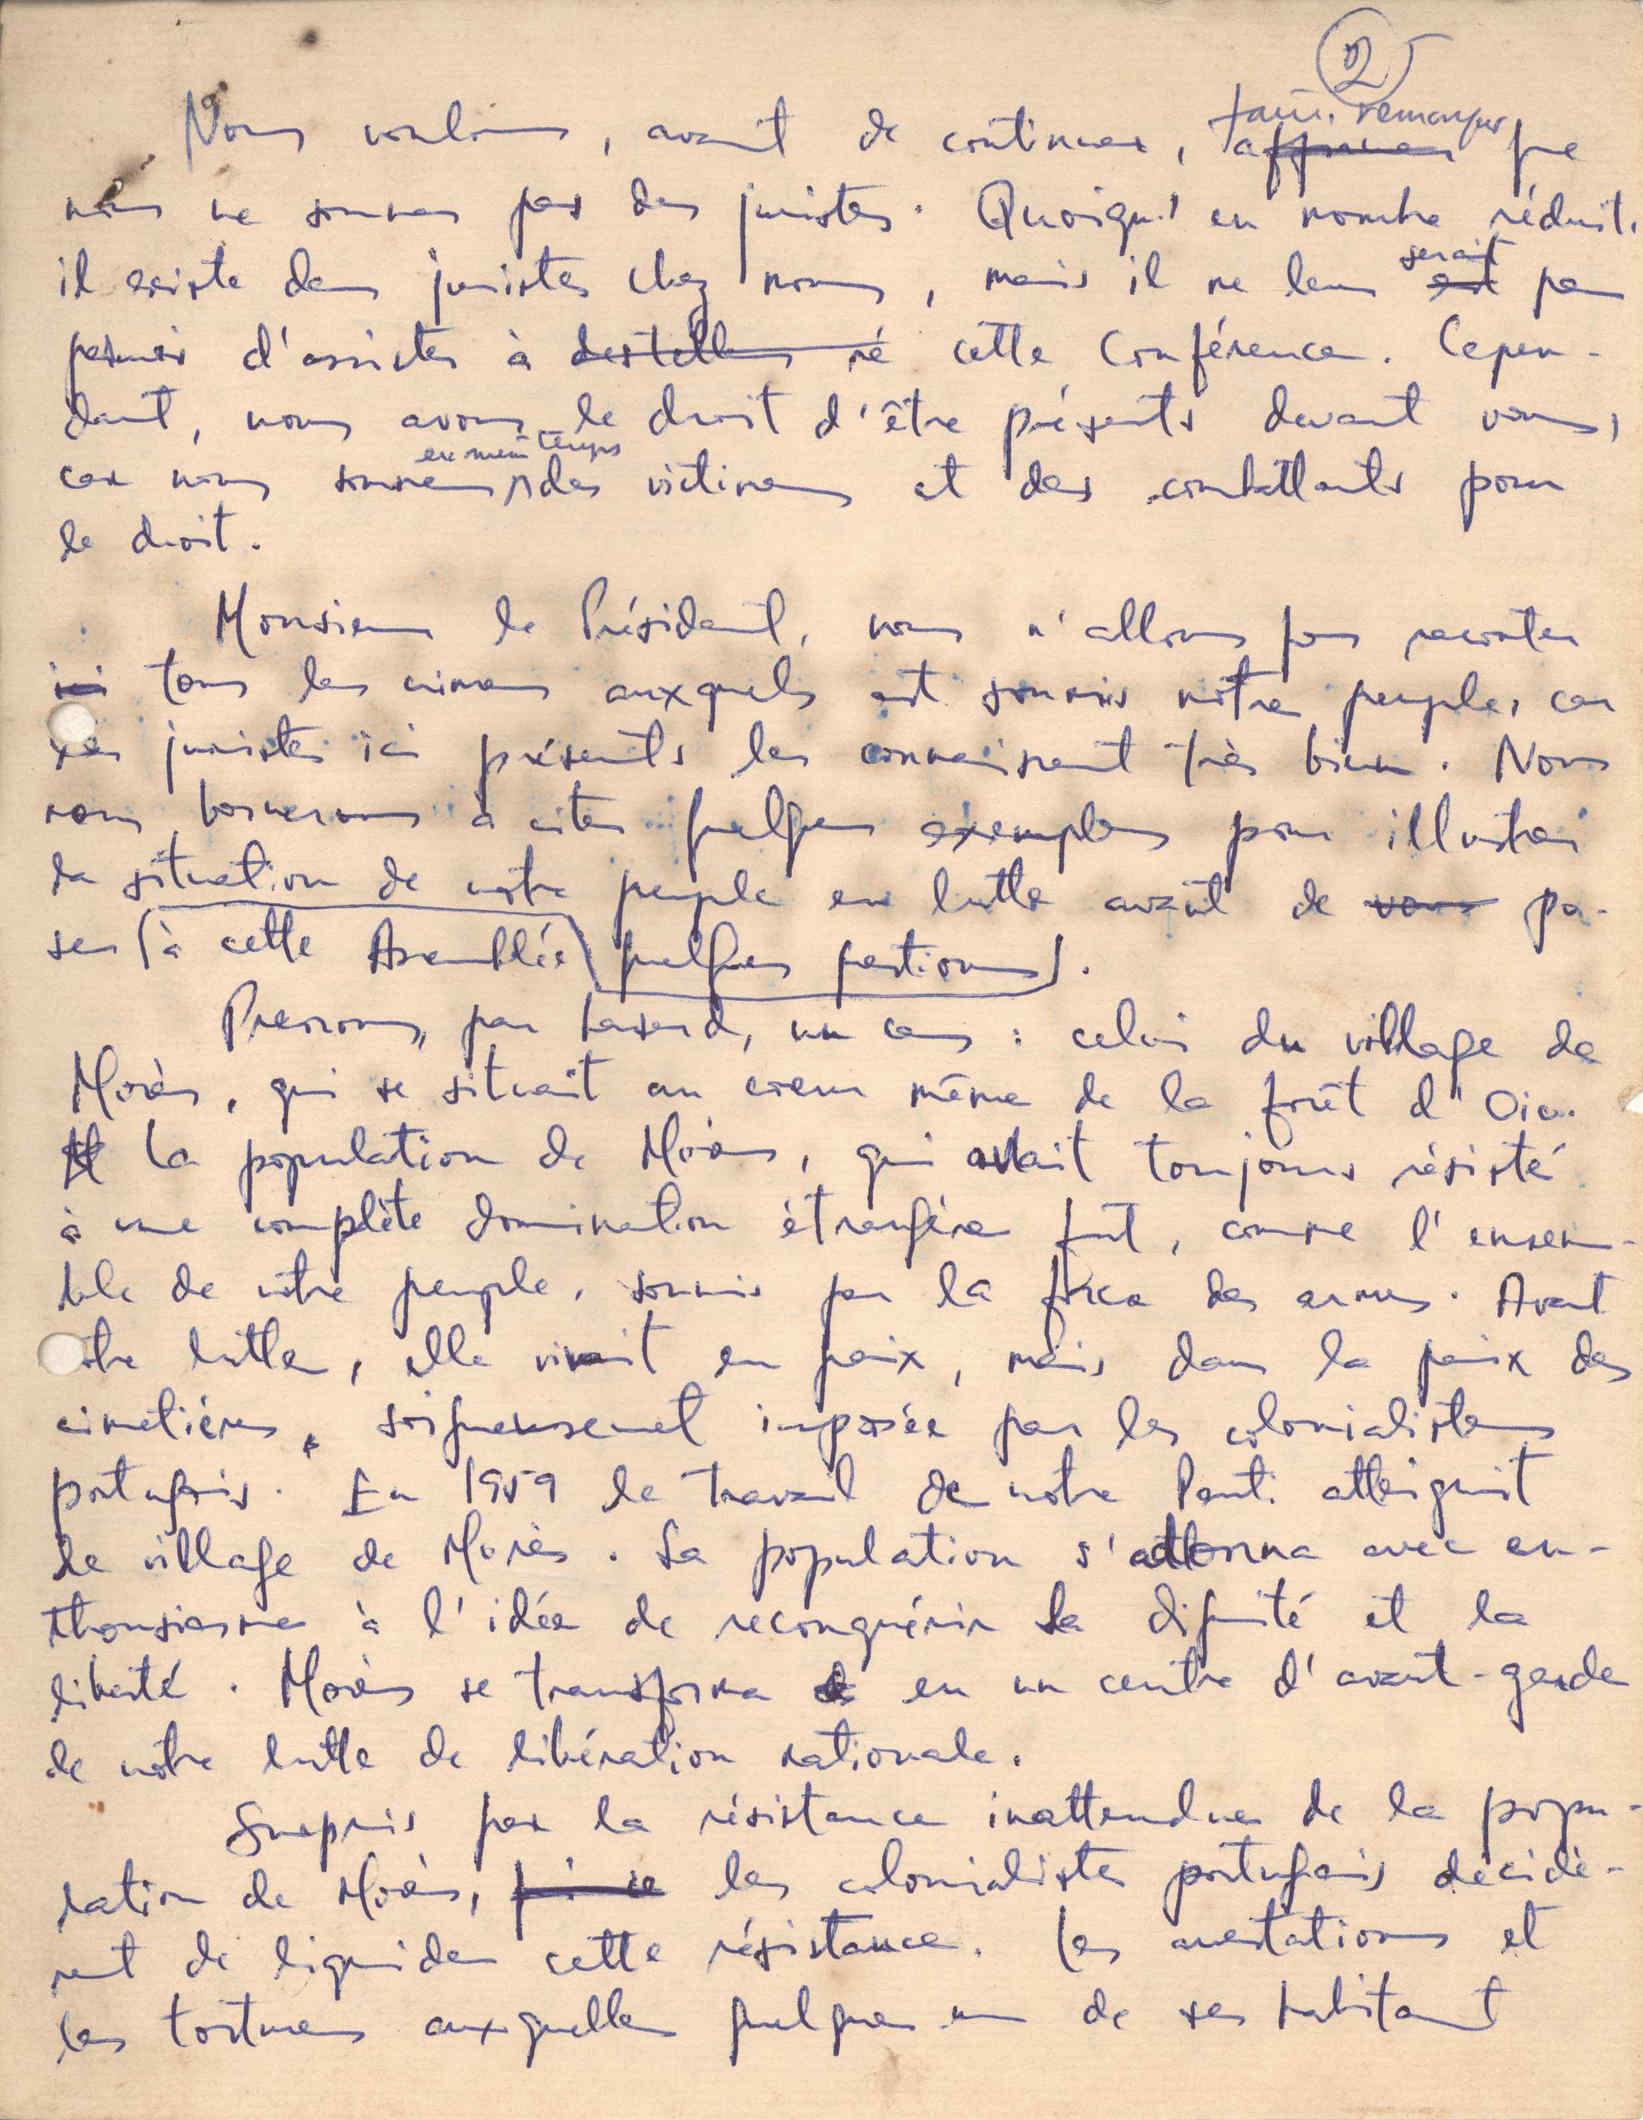 2
Nous voulons, avant de continuer, faire remarquer que
nous ne sommes pas des juristes. Quoiqu'en nombre réduit,
il existe des juristes chez nous, mais il ne leur est serait pas
permis d'assister à cette Conférence. Cepen-
dant, nous avons le droit d'être présents devant vous,
car nous sommes en même temps des victimes et des combattants pour
le droit.
Monsieur le Président, nous n'allons pas raconter
ici tous les crimes auxquels est soumis notre peuple, car
les juristes ici présents les connaissent très bien. Nous
nous bornerons à citer quelques exemples pour illustrer
la situation de notre peuple en lutte avant de vous po-
ser (à cette Assemblée) quelques questions).
Prenons, par hasard, un cas : celui du village de
Morès, qui se situait au coeur même de la forêt d'Oio.
La population de Morès, qui avait toujours résisté
à une complète domination étrangère fut, comme l'ensem-
ble de notre peuple, soumis par la force des armes. Avant
notre lutte, elle vivait en paix, mais dans la paix des
cimetières, soigneusemet imposée par les colonialistes
portugais. En 1959 le travail de notre Parti atteignit
le village de Morès. La population s'adonna avec en-
thousiasme à l'idée de reconquérir sa dignité et la
liberté. Morès se transforma en un centre d'avant-garde
de notre lutte de libération nationale.
Surpris par la résistance inattendue de la popu-
lation de Morès, les colonialistes portugais décidè-
rent de liquider cette résistance. Les arrestations et
les tortures auxquelles quelques un de ses habitant